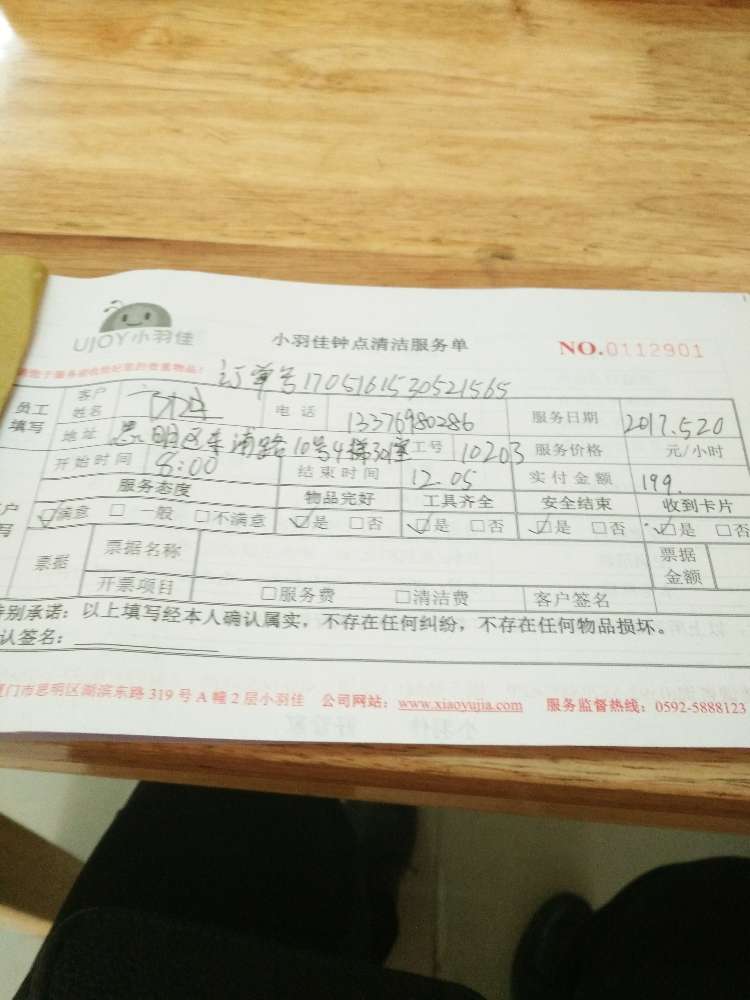 UJOY小羽佳
小羽佳钟点清洁服务单
NO.0112901
订单号1705161530521565
员工填写 客户姓名 电话 13376980286 服务日期 2017.5.20
地址 思明区东浦路10号4梯301室 工号 10203 服务价格 元/小时
开始时间 8:00 结束时间 12.05 实付金额 199.
服务态度 物品完好 工具齐全 安全结束 收到卡片
☑满意 □一般 □不满意 ☑是 □否 ☑是 □否 ☑是 □否 ☑是 □否
票据 票据名称 票据金额
开票项目 □服务费 □清洁费 客户签名
特别承诺：以上填写经本人确认属实，不存在任何纠纷，不存在任何物品损坏。
认签名：
厦门市思明区湖滨东路319号A幢2层小羽佳 公司网站：www.xiaoyujia.com 服务监督热线：0592-5888123